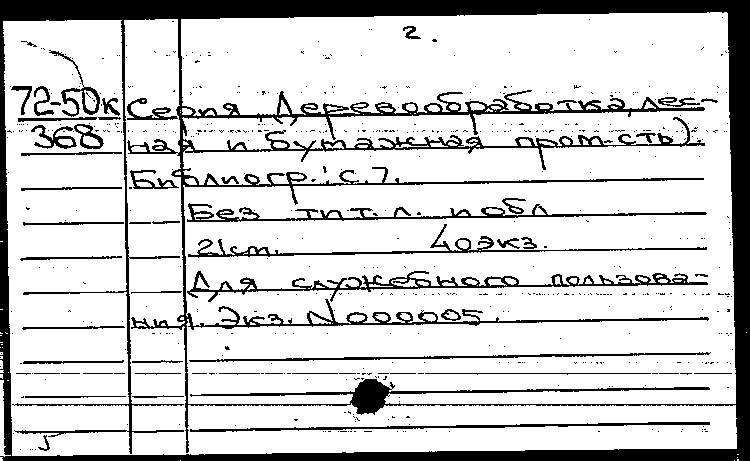 2.
72-50к Серия „Деревообработка, лес-
368 ная и бумажная пром-сть).
Библиогр.: с. 7.
Без тит. л. и обл
21 cm. 40 экз.
Для служебного пользова-
ния. Экз. N 000005.